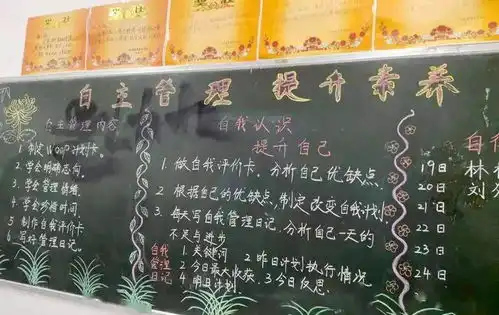 自主管理 提升素养
自主管理内容
1. 制定WOOP计划卡。
2. 学会明确志向。
3. 学会管理情绪。
4. 学会珍惜时间。
5 制作自我评价卡
6 写好管理日记。
自我认识
提升自己
1. 做自我评价卡,分析自己优缺点.
2 根据自己的优缺点,制定改变自我计划
3. 每天写自我管理日记,分析自己一天的
不足与进步
自我
管理
日记
1. 关键词 2 昨日计划执行情况
2 今日最大收获. 3 今日反思.
4 明日计划.
19日
20日
21日
22日
23日
24日
自
林
刘